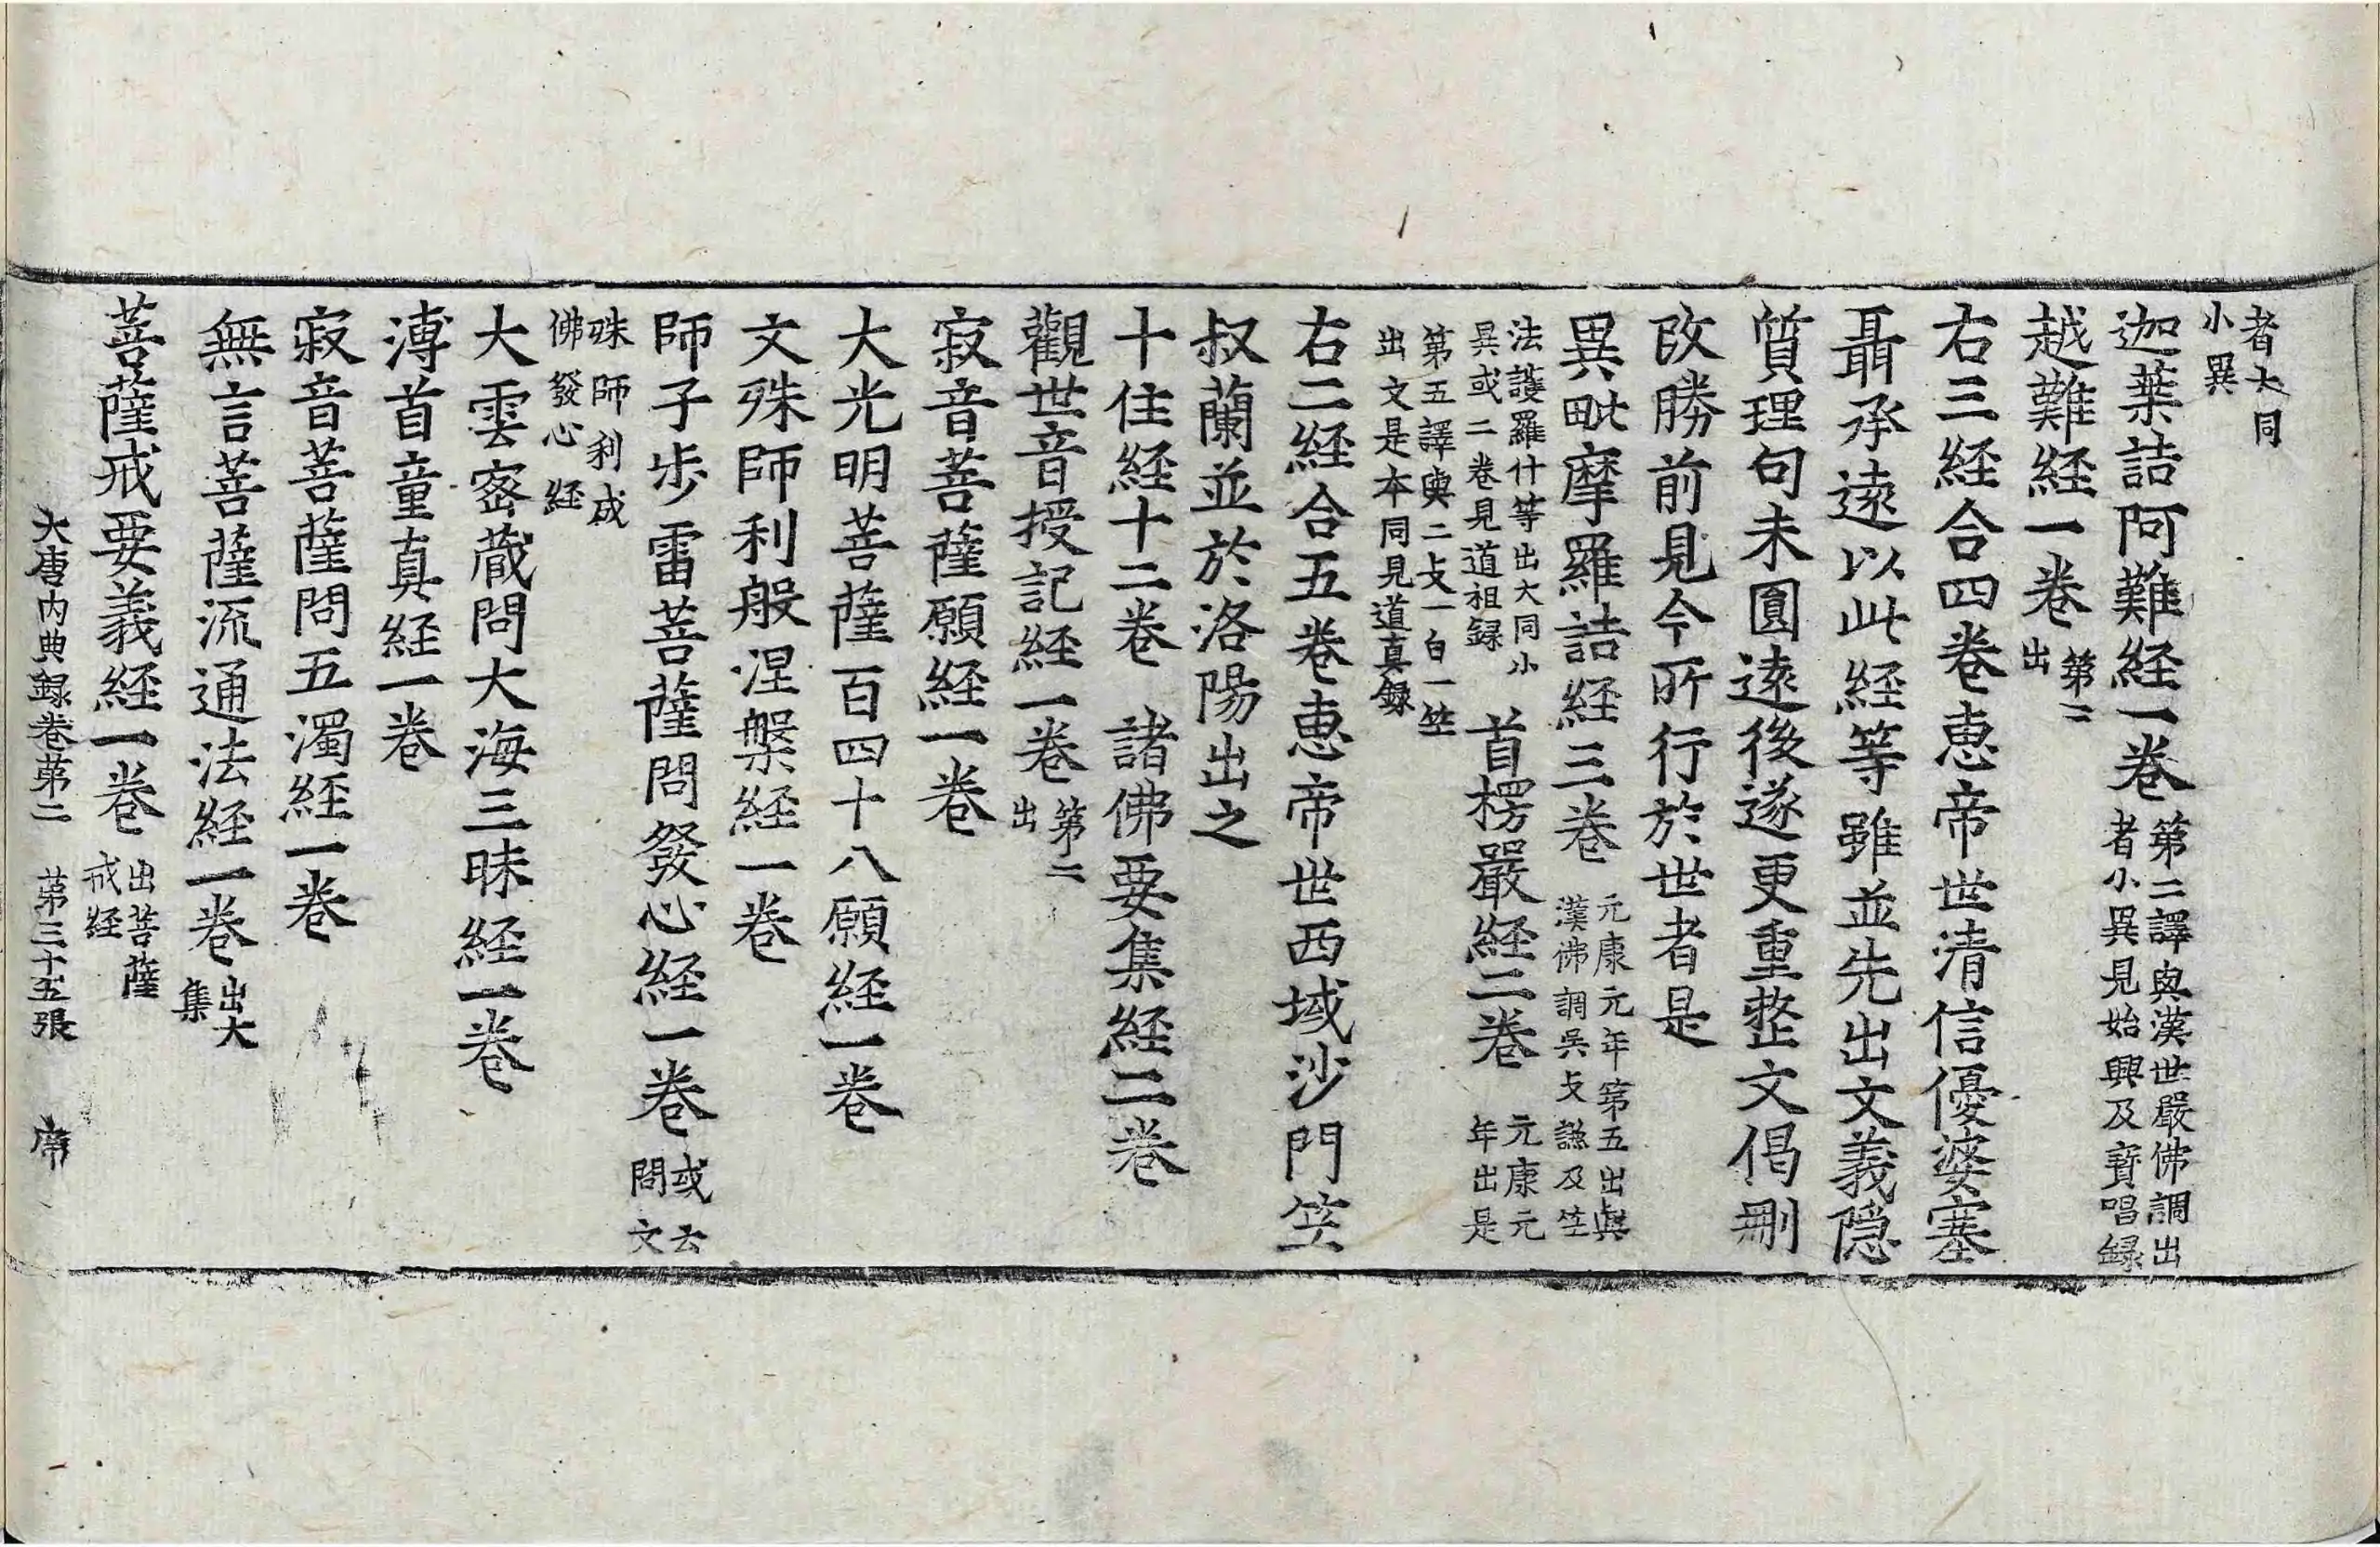 者大同
小異
迦葉詰阿難経一卷第二譯與漢世嚴佛調出
者小異見始興及寶唱録
越難経一卷第二
出
右三経合四卷惠帝世清信優婆塞
聶承遠以此経等雖並先出文義隠
質理句未圓遠後遂更重整文偈刪
改勝前見今所行於世者是
異毗摩羅詰経三卷元康元年第五出與
漢佛調吳支謙及竺
法護羅什等出大同小
異或二卷見道祖録
首楞嚴経二卷元康元
年出是
第五譯與二支一白一竺
出文是本同見道真録
右二経合五卷惠帝世西域沙門竺
叔蘭並於洛陽出之
十住経十二卷 諸佛要集経二卷
觀世音授記経一卷第二
出
寂音菩薩願経一卷
大光明菩薩百四十八願経一卷
文殊師利般涅槃経一卷
師子步雷菩薩問發心経一卷或云
問文
殊師利成
佛發心経
大雲密蔵問大海三昧経一卷
溥首童真経一卷
寂音菩薩問五濁経一卷
無言菩薩流通法経一卷出大
集
菩薩戒要義経一卷出菩薩
戒経
大唐内典録卷第二 第三十五張 席